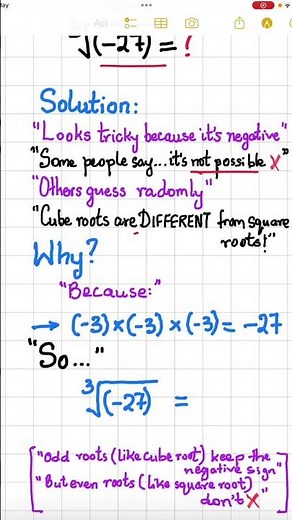 ∛(-27) = !
Solution:
"Looks tricky because it's negative"
"Some people say...it's not possible ✗"
"Others guess radomly"
"Cube roots are DIFFERENT from square
roots!"
Why?
"Because:"
→ (-3)×(-3)×(-3) = -27
"So..."
∛(-27) =
"Odd roots (like cube root) keep the
negative sign"
"But even roots (like square root)
don't ✗"